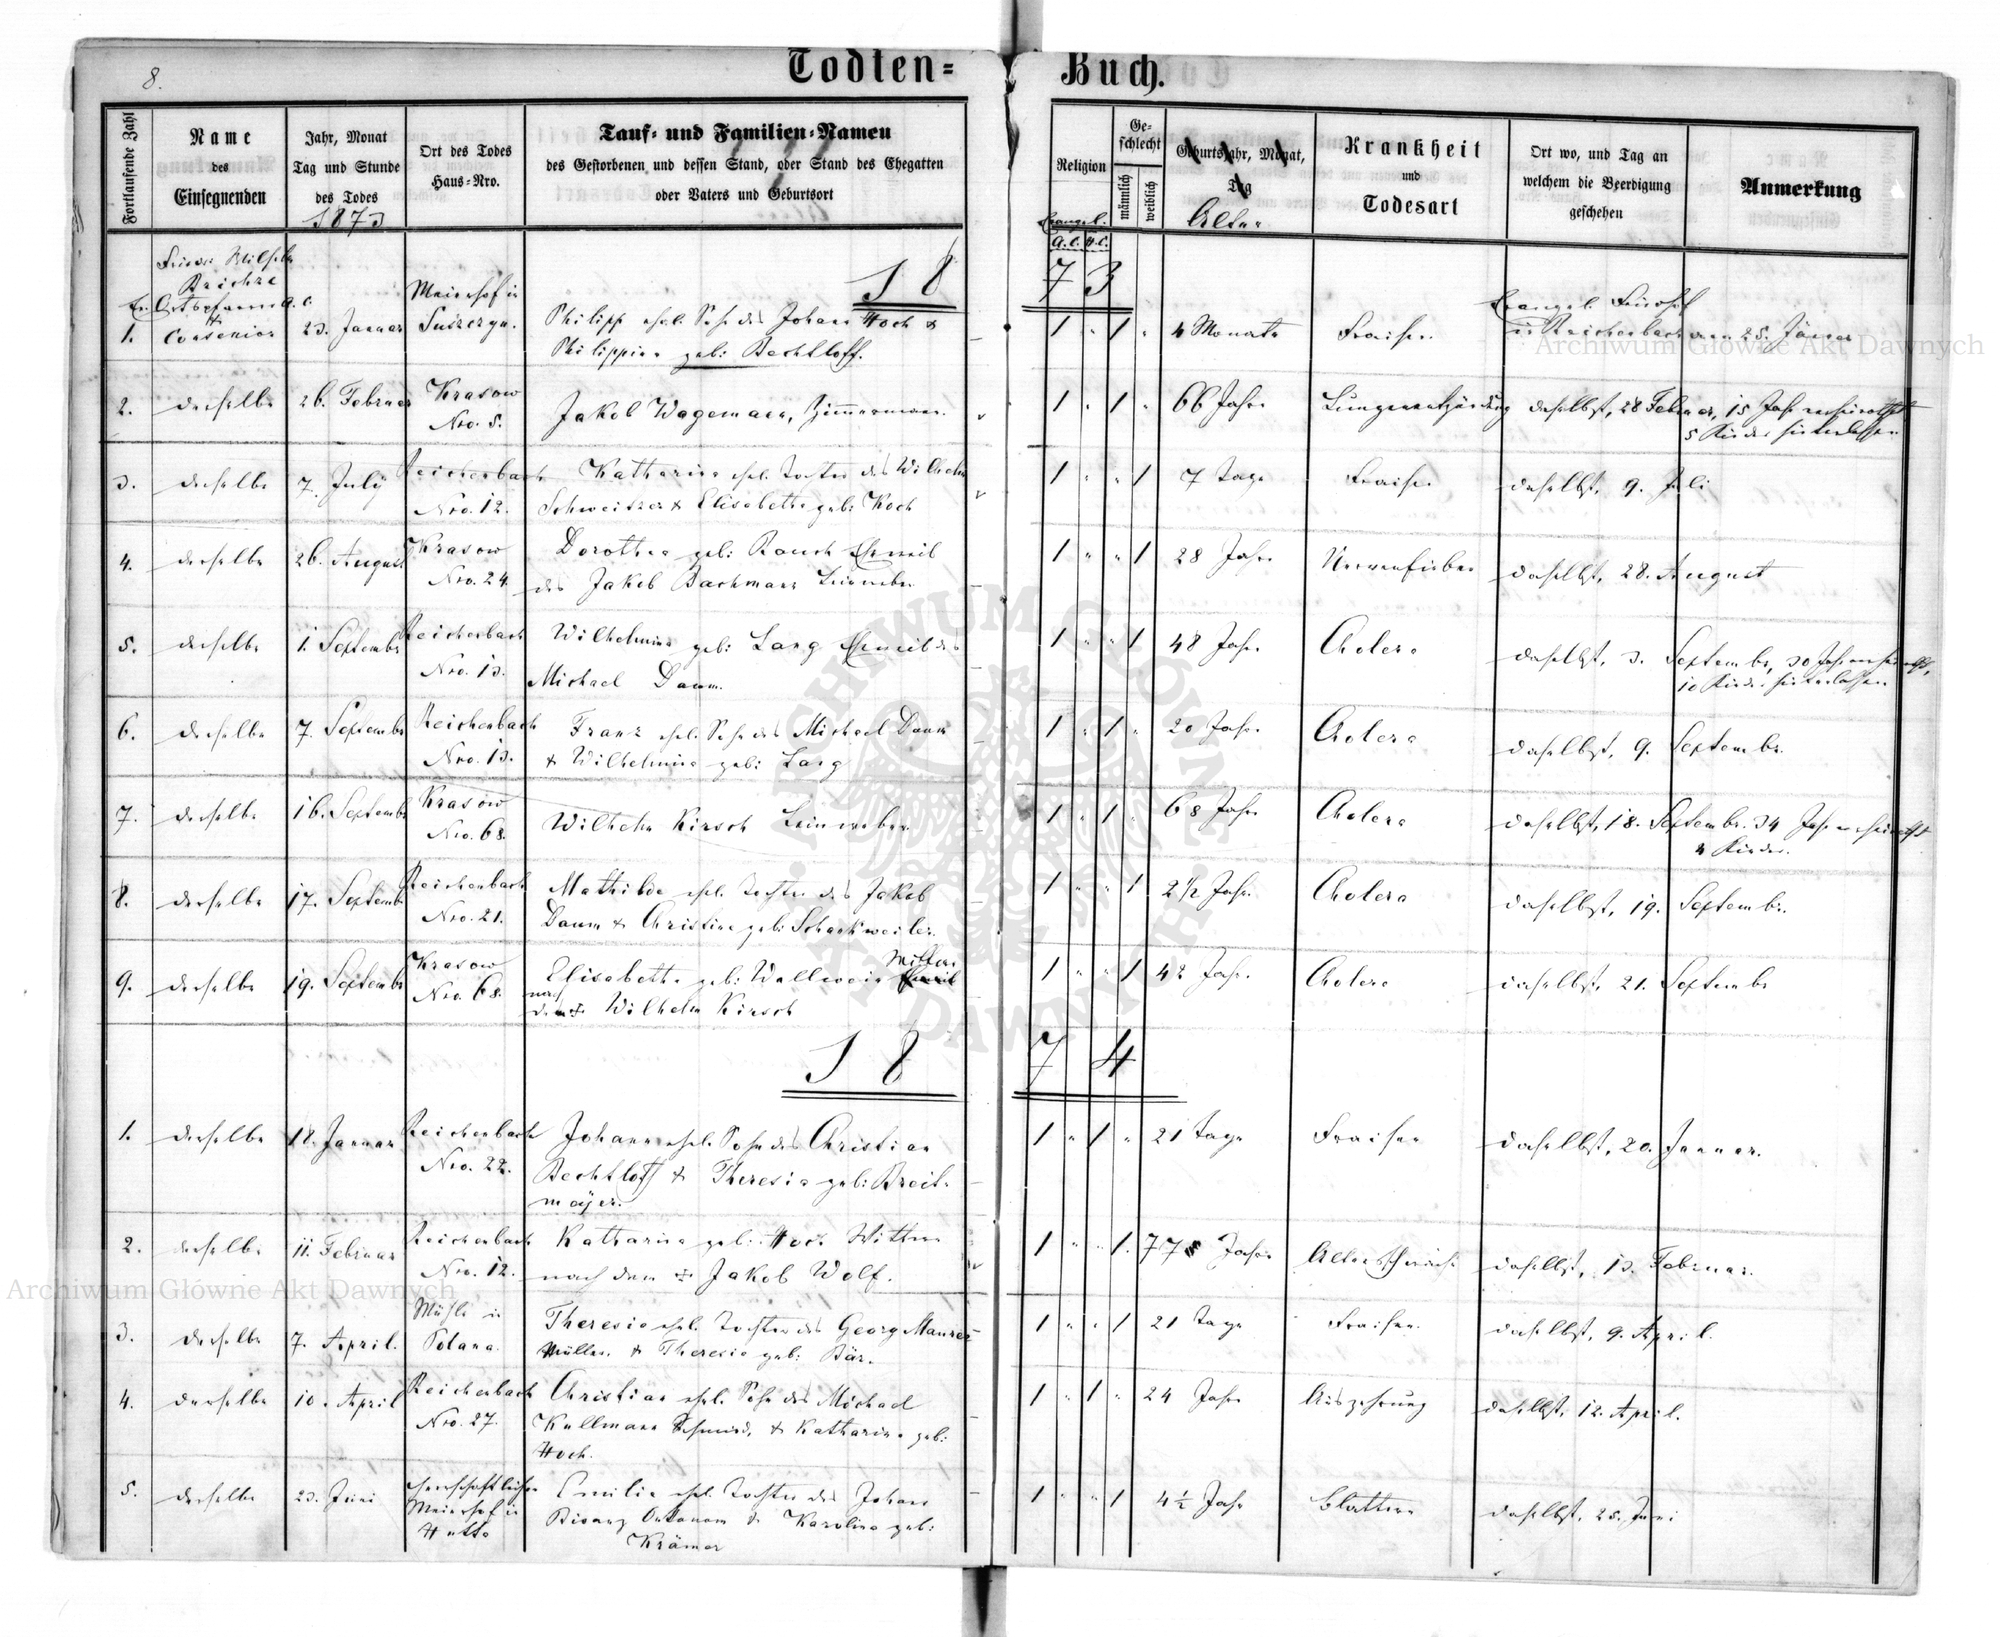 8.
Todten-Buch.
Fortlaufende Zahl
Name
des
Einsegnenden
Jahr, Monat
Tag und Stunde
des Todes
1873
Ort des Todes
Haus-Nro.
Tauf- und Familien-Namen
des Gestorbenen und dessen Stand, oder Stand des Ehegatten
oder Vaters und Geburtsort
Religion
Evangel.
A.C. H.C.
Geschlecht
männlich
weiblich
Geburtsjahr, Monat,
Tag
Alter
Krankheit
und
Todesart
Ort wo, und Tag an
welchem die Beerdigung
geschehen
Anmerkung
1873
1. Consenior 23. Januar Meierhof in Suszczyn. Philipp ehel. Sohn des Johann Hoch &
Philippine geb: Bechtloff. 1 " 1 " 4 Monate Fraisen Evangel. Friedhof
in Reichenbach am 25. Jänner
2. derselbe 26. Februar Krasow Nro. 5. Jakob Wagemann, Zimmermann. 1 " 1 " 66 Jahre Lungenentzündung daselbst, 28 Februar, 15 Jahr verheirathet
5 Kinder hinterlassen
3. derselbe 7. July Reichenbach Nro. 12. Katharina ehel. Tochter des Wilhelm
Schweitzer & Elisabetha geb: Koch 1 " " 1 7 Tage Fraisen daselbst, 9. Juli
4. derselbe 26. August Krasow Nro. 24. Dorothea geb: Rauch Eheweib
des Jakob Bachmann Leinweber 1 " " 1 28 Jahre Nervenfieber daselbst, 28. August
5. derselbe 1. September Reichenbach Nro. 13. Wilhelmina geb: Lang Eheweib des
Michael Daum. 1 " " 1 48 Jahre Cholera daselbst, 3. September, 30 Jahr verheirathet,
10 Kinder hinterlassen
6. derselbe 7. September Reichenbach Nro. 13. Franz ehel. Sohn des Michael Daum
& Wilhelmina geb: Lang 1 " 1 " 20 Jahre Cholera daselbst, 9. September.
7. derselbe 16. September Krasow Nro. 68. Wilhelm Kirsch Leinweber 1 " 1 " 68 Jahre Cholera daselbst, 18. September. 34 Jahr verheirathet
4 Kinder.
8. derselbe 17. September Reichenbach Nro. 21. Mathilde ehel. Tochter des Jakob
Daum & Christine geb: Scharkweiler. 1 " " 1 2 1/2 Jahre Cholera daselbst, 19. September.
9. derselbe 19. September Krasow Nro. 68. Elisabetha geb: Wallwein Wittwe
nach dem Wilhelm Kirsch 1 " " 1 42 Jahre Cholera daselbst, 21. September
1874
1. derselbe 18. Januar Reichenbach Nro. 22. Johann ehel. Sohn des Christian
Bechtloff & Theresia geb: Breit-
mayer. 1 " 1 " 21 Tage Fraisen daselbst, 20. Januar.
2. derselbe 11. Februar Reichenbach Nro. 12. Katharina geb: Hoch Wittwe
nach dem Jakob Wolf. 1 " " 1. 77 Jahre Altersschwäche daselbst, 13. Februar.
3. derselbe 7. April. Mühle in Polana. Theresia ehel. Tochter des Georg Maurer
Müller. & Theresia geb: Bär. 1 " " 1 21 Tage Fraisen. daselbst, 9. April.
4. derselbe 10. April Reichenbach Nro. 27. Christian ehel. Sohn des Michael
Kullmann Schmied, & Katharina geb:
Hoch. 1 " 1 " 24 Jahre Auszehrung daselbst, 12. April.
5. derselbe 23. Juni herrschaftlicher Meierhof in Emilie ehel. Tochter des Johann
Bisanz Oekonom & Karolina geb:
Krämer 1 " " 1 4 1/2 Jahr Blattern daselbst, 25. Juni
Archiwum Główne Akt Dawnych
Archiwum Główne Akt Dawnych
ARCHIWUM GŁÓWNE AKT DAWNYCH